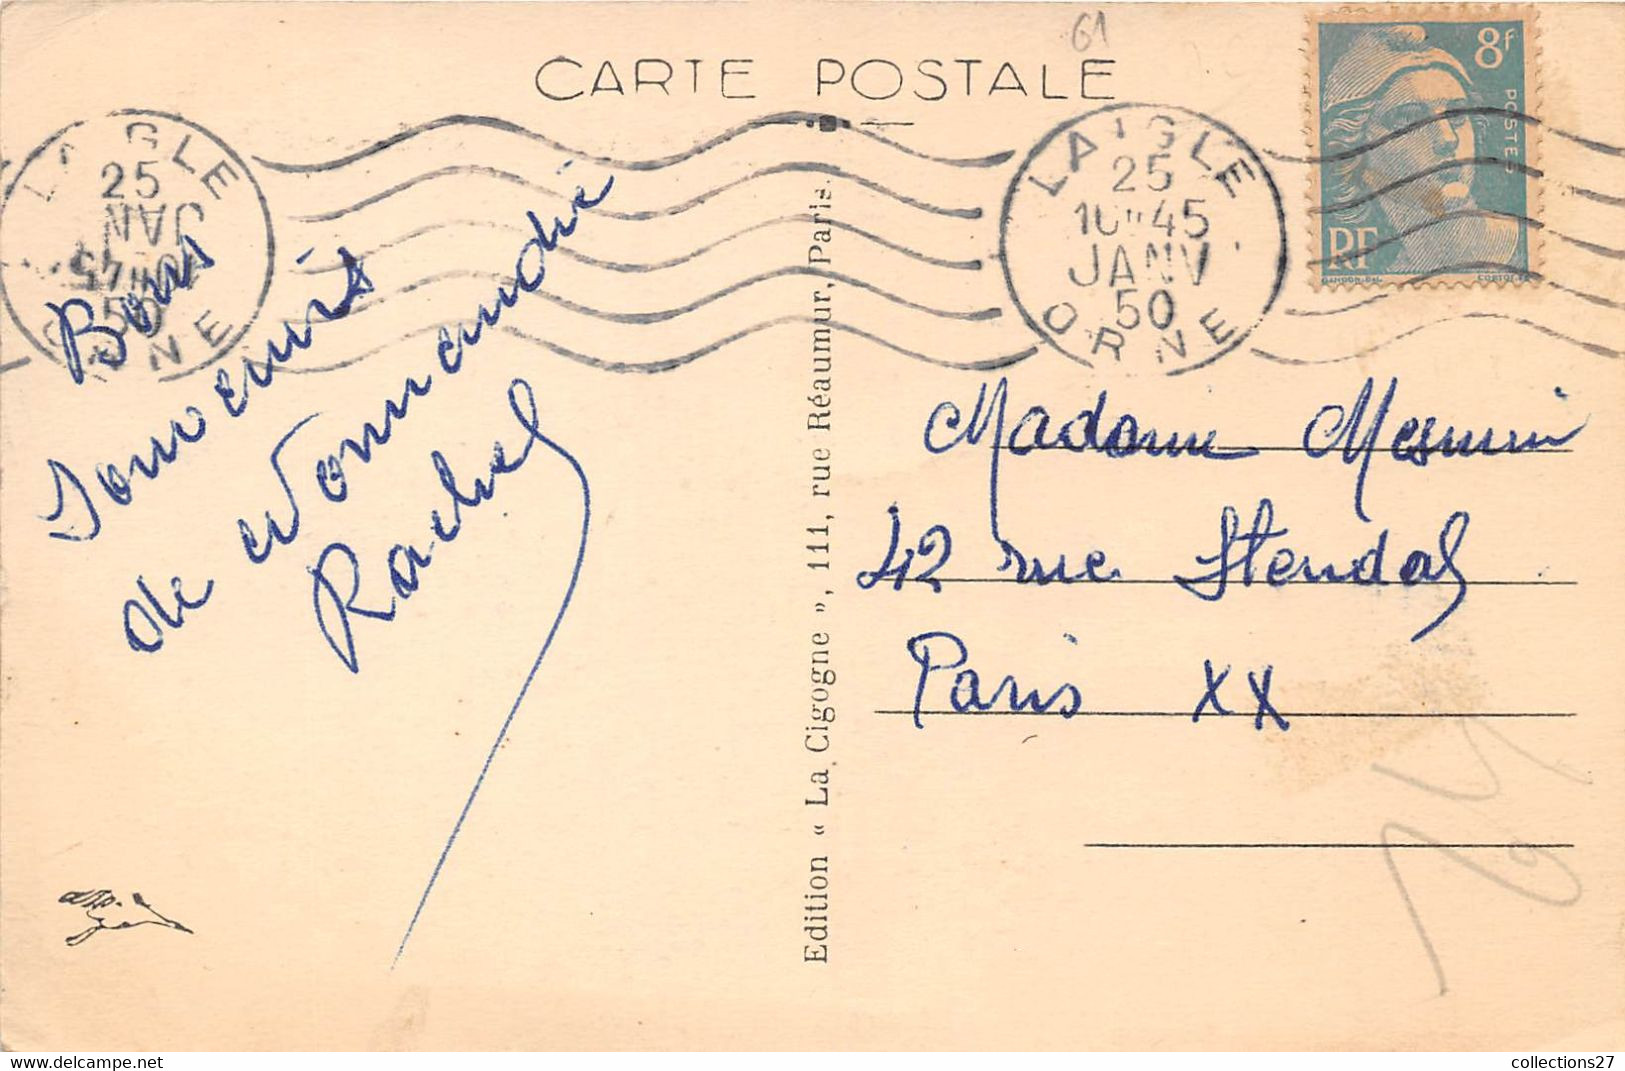 61
CARTE POSTALE
8f
POSTES
RF
LAIGLE
25
JANV
50
ORNE
LAIGLE
25
10H45
JANV
50
ORNE
Bons
Souvenirs
de Normandie
Rachel
Edition « La Cigogne », 111, rue Réaumur, Paris.
Madame Mesmin
42 rue Stendal
Paris XX
collections27